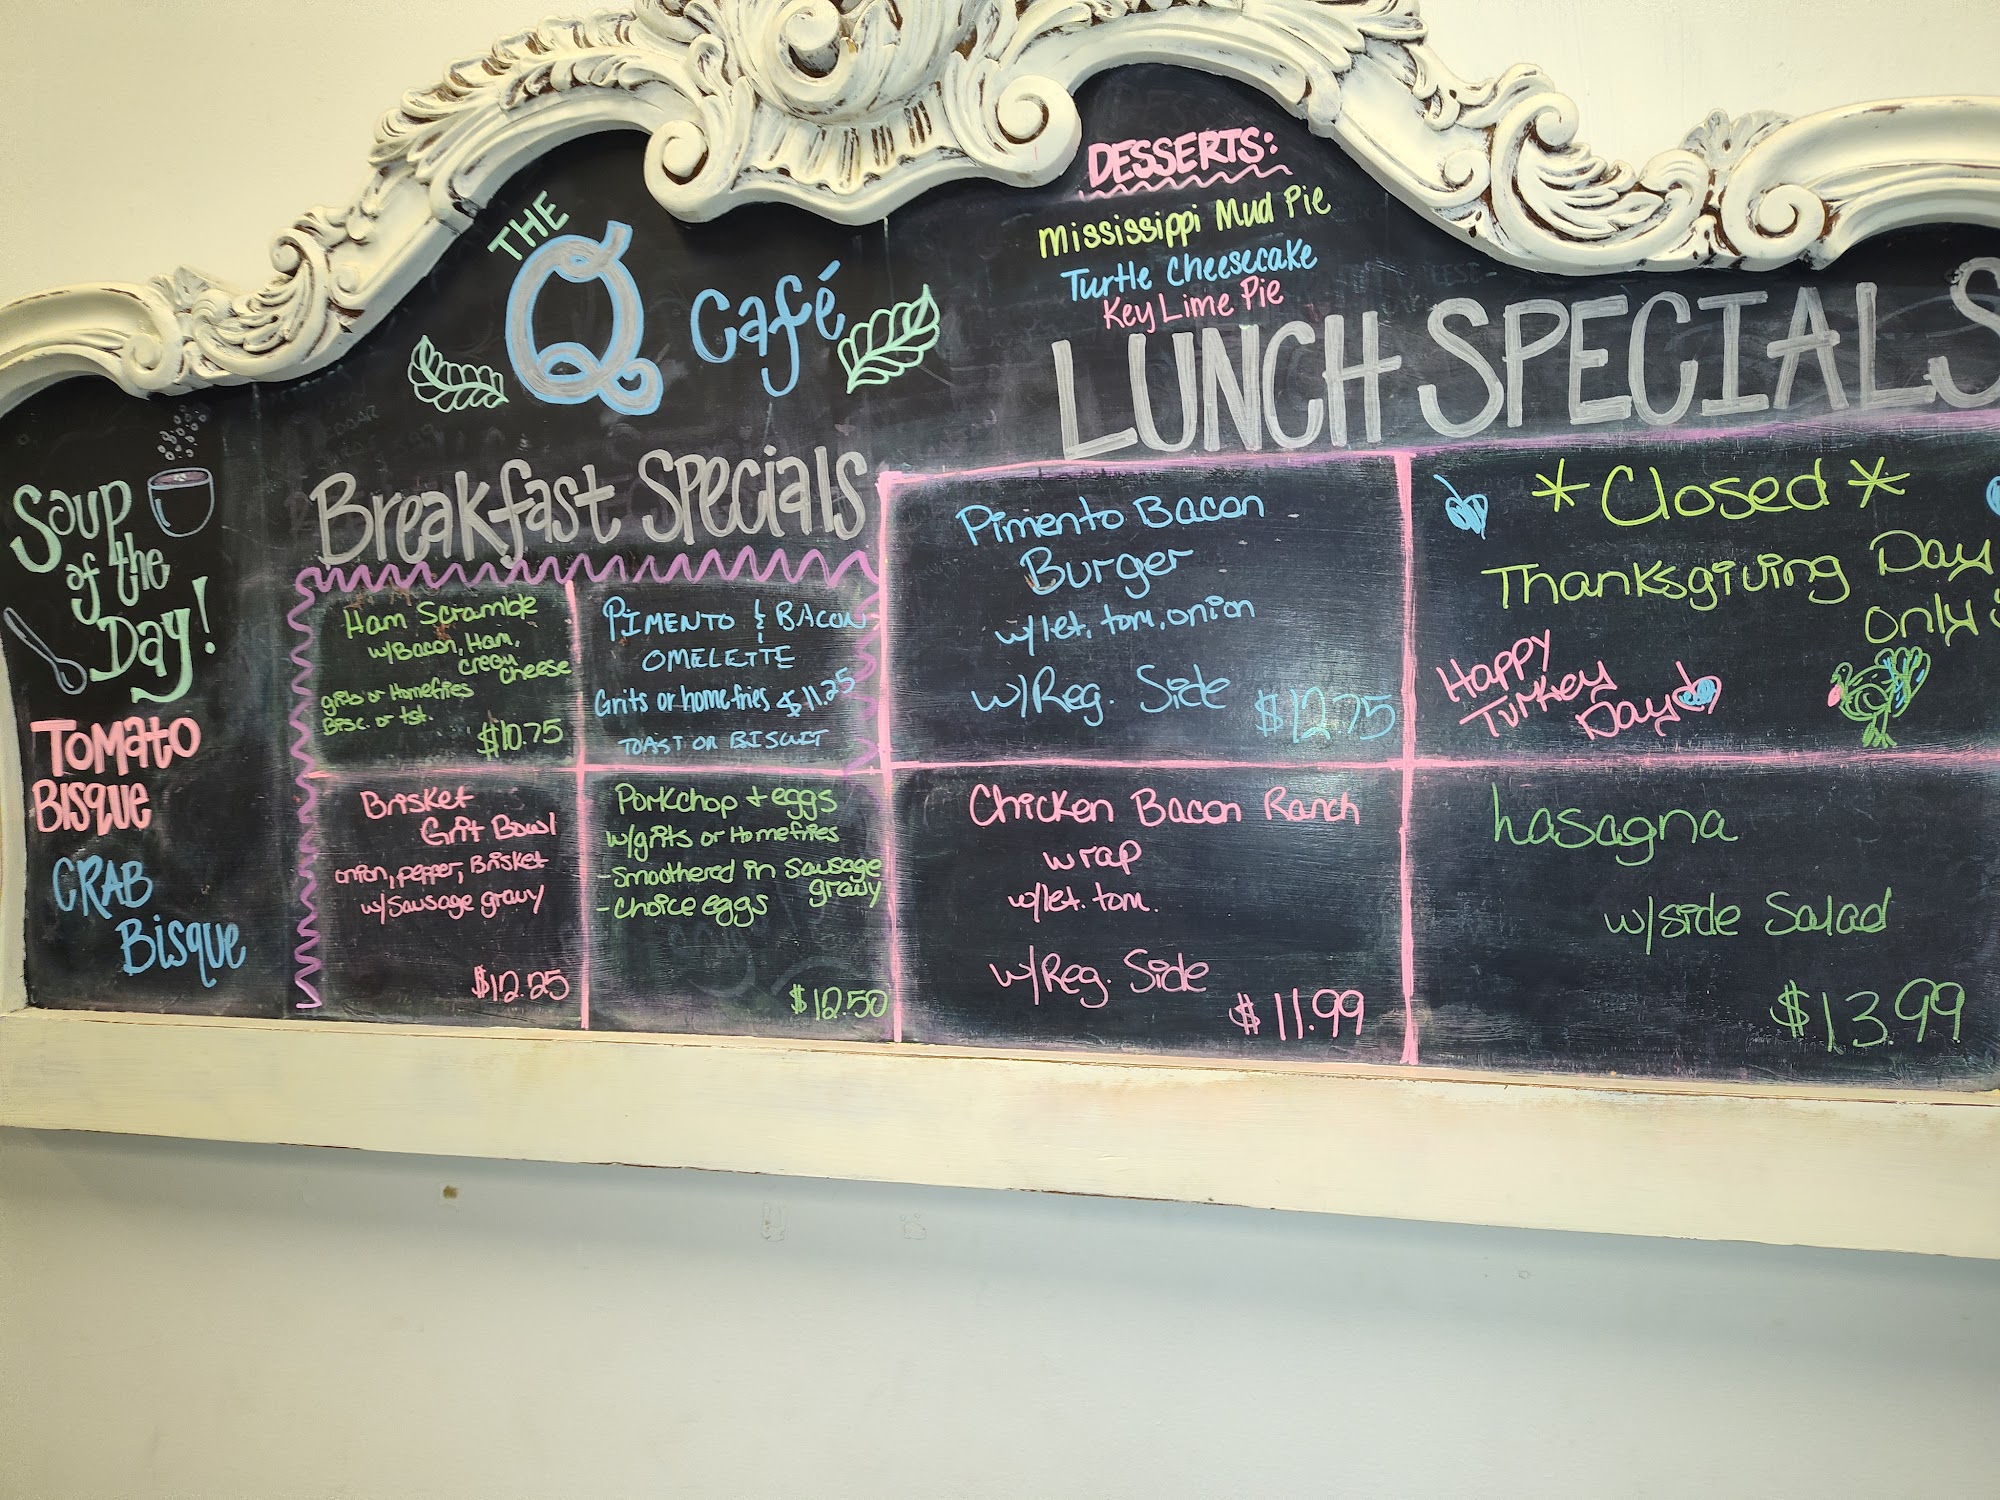 THE
Q Café
DESSERTS:
Mississippi Mud Pie
Turtle Cheesecake
Key Lime Pie
Soup
of the
Day!
TOMATO
BISQUE
CRAB
Bisque
Breakfast Specials
Ham Scramble
w/Bacon, Ham,
cream
cheese
grits or Homefries
Bisc. or tst.
$10.75
PIMENTO & BACON
OMELETTE
Grits or homefries $11.25
TOAST OR BISCUIT
Brisket
Grit Bowl
onion, pepper, Brisket
w/Sausage gravy
$12.25
Porkchop + eggs
w/grits or Homefries
-Smoothered in Sausage
gravy
-Choice eggs
$12.50
LUNCH SPECIALS
Pimento Bacon
Burger
w/let, tom, onion
w/Reg. Side
$12.75
*Closed*
Thanksgiving Day
only
Happy
Turkey
Day
Chicken Bacon Ranch
wrap
w/let. tom.
w/Reg. Side
$11.99
Lasagna
w/side Salad
$13.99